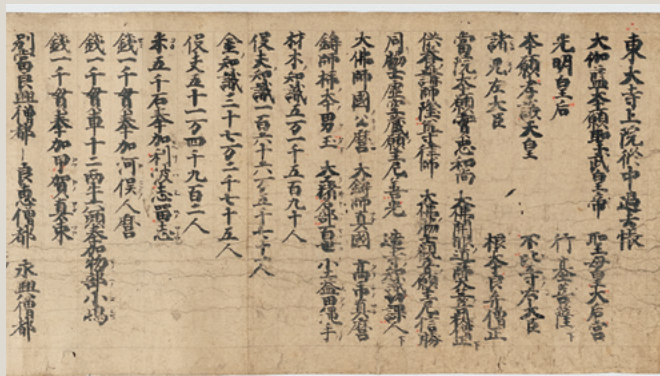 東大寺上院修中過去帳
大伽藍本願聖武皇帝 聖母皇大后宮
光明皇后 行基菩薩
本願孝謙天皇 不比等右大臣
諸兄左大臣 根本良弁僧正
當院本願實忠和尚 大佛開眼導師天竺菩提僧正
供養講師隆尊律師 大佛脇士觀音願主尼信勝
同脇士虚空蔵願主尼善光 造寺知識功課人
大佛師國公麿 大鋳師真國 高市真麿
鋳師柿本男玉 大工猪名部百世 小工益田縄手
材木知識五万一千五百九十人
役夫知識一百六十六万五千七十一人
金知識三十七万二千七十五人
役夫五十一万四千九百二人
米五千石奉加利波志留志
錢一千貫奉加河俣人麿
錢一千貫車十二両牛六頭奉加物部小嶋
錢一千貫奉加甲賀真束
別當良興僧都 良惠僧都 永興僧都